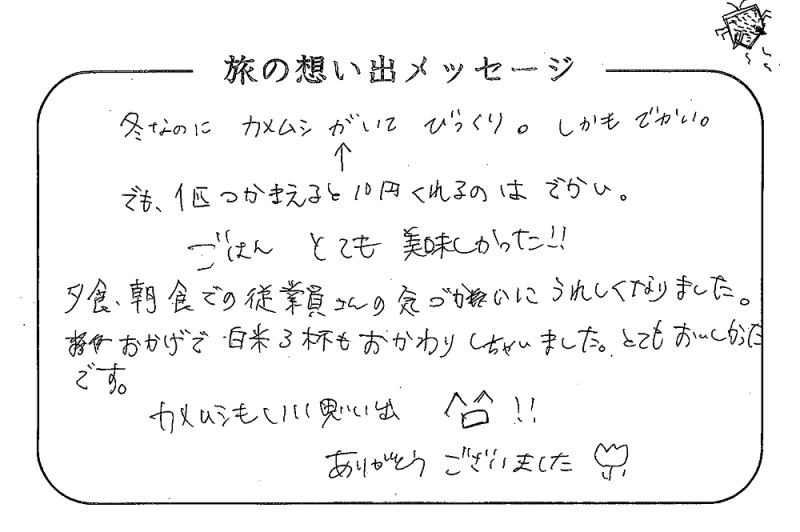 旅の想い出メッセージ
冬なのに カメムシ がいて びっくり。しかも でかい。
↑
でも、1匹つかまえると10円くれるのは でかい。
ごはん とても 美味しかった!!
夕食、朝食での従業員さんの気づかいにうれしくなりました。
おかげで 白米3杯もおかわりしちゃいました。とてもおいしかった
です。
カメムシもいい思い出 !!
ありがとう ございました